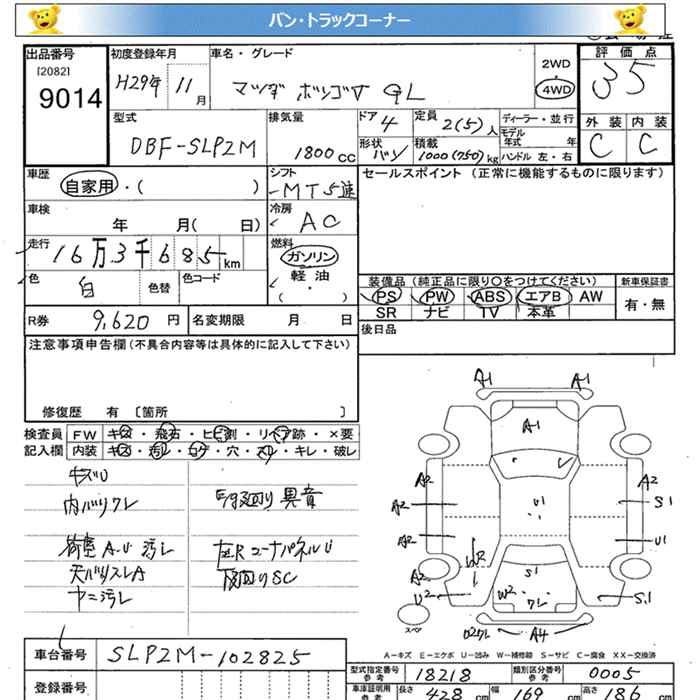 バン・トラックコーナー
出品番号
[2082]
9014
初度登録年月
H29年 11月
車名・グレード
マツダ ボンゴV GL
2WD
4WD
評価点
35
外装 内装
C C
型式
DBF-SLP2M
排気量
1800cc
ドア 4
形状 バン
定員 2(5)人
積載 1000(750)kg
ディーラー・並行
モデル年式 年
ハンドル 左・右
車歴
自家用・( )
シフト
MT5速
セールスポイント (正常に機能するものに限ります)
車検
年 月( 日)
冷房
AC
走行
16万3千685km
燃料
ガソリン
軽油
( )
色
白
色替
色コード
装備品 (純正品に限り○をつけてください)
PS PW ABS エアB AW
SR ナビ TV 本革
新車保証書
有・無
R券 9,620円
名変期限 月 日
後日品
注意事項申告欄(不具合内容等は具体的に記入して下さい)
修復歴 有 〔箇所 〕
検査員記入欄
FW キズ・飛石・ヒビ割・リペア跡・×要
内装 キズ・汚レ・コゲ・穴・スレ・キレ・破レ
キズU
内バリクレ
荷室 A.U 汚レ
天バリスレA
ヤニ汚レ
E/G廻り異音
左Rコーナパネルu
下廻りSC
A1 A1
A1
U1
A2
A2
A2
A2
S1
U1
W2
U2
S1
W2
クレ
S1
スペア
A4
A-キズ E-エクボ U-凹み W-補修跡 S-サビ C-腐食 XX-交換済
車台番号
SLP2M-102825
登録番号
型式指定番号
参考
18218
類別区分番号
参考
0005
車庫証明用
参考
長さ 428 cm
幅 169 cm
高さ 186 cm